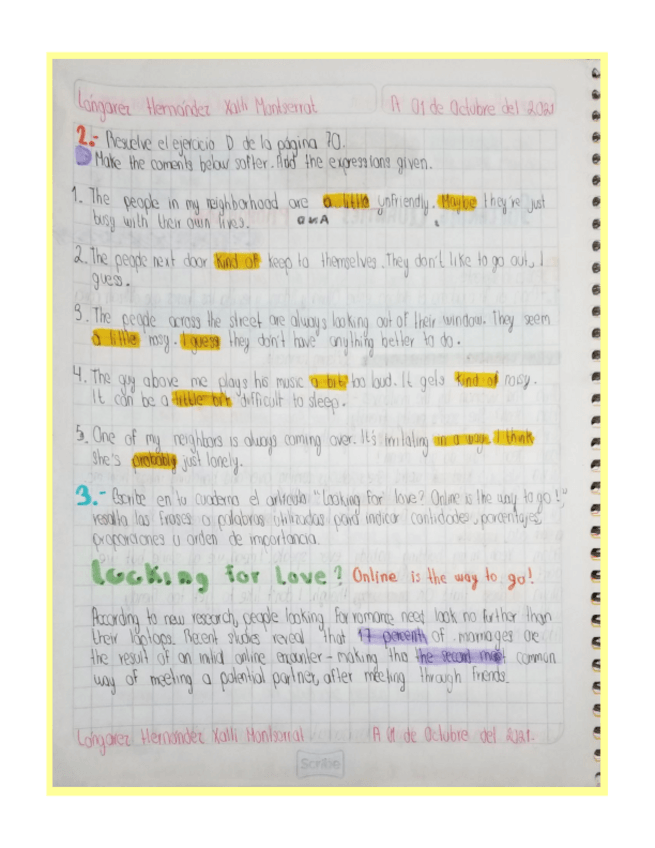 Longarez Hernández Xalli Montserrat A 01 de Octubre del 2021
2.- Resuelve el ejercicio D de la página 70.
Make the coments below softer. Add the expressions given.
1. The people in my neighborhood are a little unfriendly. Maybe they're just
busy with their own lives.
2. The people next door kind of keep to themselves. They don't like to go out, I
guess.
3. The people across the street are always looking out of their window. They seem
a little nosy. I guess they don't have anything better to do.
4. The guy above me plays his music a bit too loud. It gets kind of noisy.
It can be a little bit difficult to sleep.
5. One of my neighbors is always coming over. It's irritating in a way. I think
she's probably just lonely.
3.- Escribe en tu cuaderno el artículo "Looking for love? Online is the way to go!",
resalta las frases o palabras utilizadas para indicar cantidades, porcentajes,
proporciones u orden de importancia.
Looking for Love? Online is the way to go!
According to new research, people looking for romance need look no further than
their laptops. Recent studies reveal that 17 percent of marriages are
the result of an initial online encounter - making this the second most common
way of meeting a potential partner, after meeting through friends.
Longarez Hernández Xalli Montserrat A 01 de Octubre del 2021.
Scribe